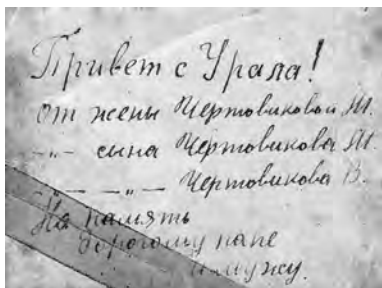 Привет с Урала!
от жены Чертовиковой М.
-„- сына Чертовикова М.
— -„- Чертовикова В.
На память
дорогому папе
и мужу.